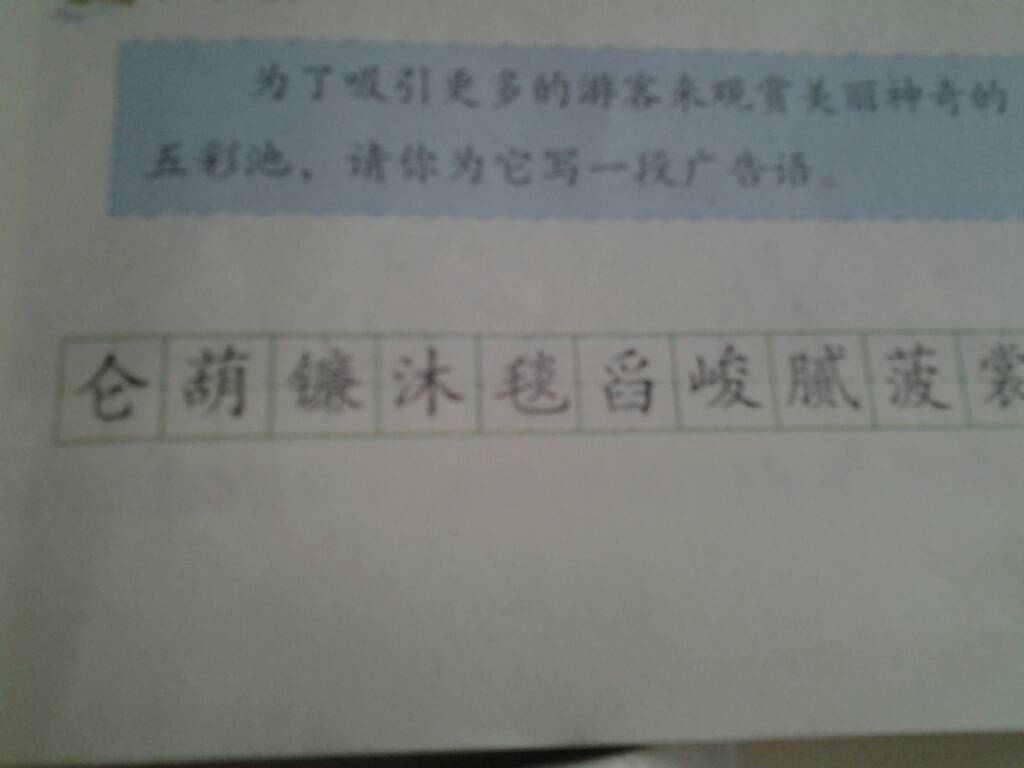 为了吸引更多的游客来观赏美丽神奇的
五彩池，请你为它写一段广告语。
仑葫镰沐毯舀峻腻菠裳